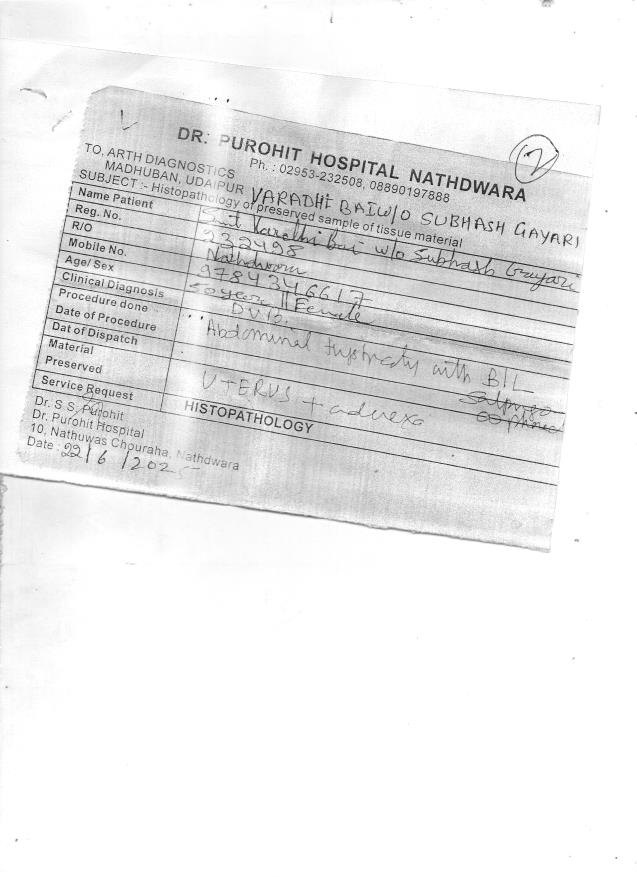 2
DR. PUROHIT HOSPITAL NATHDWARA
Ph. : 02953-232508, 08890197888
TO, ARTH DIAGNOSTICS
MADHUBAN, UDAIPUR
VARADHI BAI W/O SUBHASH GAYARI
SUBJECT :- Histopathology of preserved sample of tissue material
Name Patient Smt Varadhi Bai w/o Subhash Gayari
Reg. No. 232498
R/O Nathdwara
Mobile No. 9784346617
Age/ Sex 50 years || Female
Clinical Diagnosis
Procedure done Abdominal with BIL
Date of Procedure
Dat of Dispatch
Material
Preserved UTERUS + adnexa
Service Request HISTOPATHOLOGY
Dr. S S. Purohit
Dr. Purohit Hospital
10, Nathuwas Chouraha, Nathdwara
Date : 22/6/2025